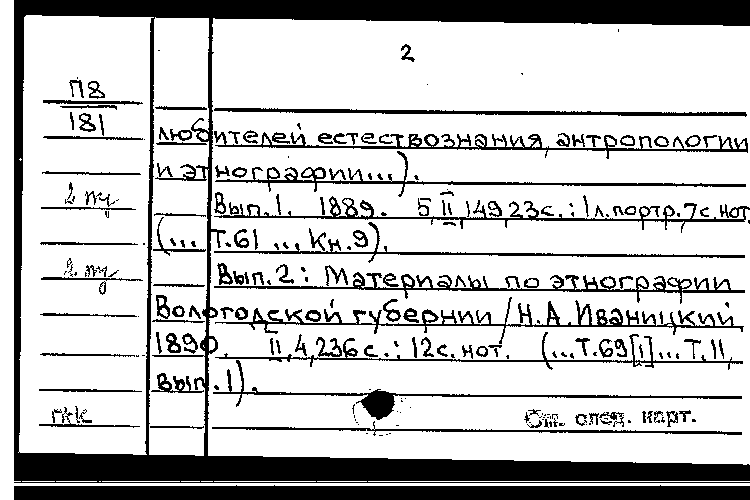 2
П8
181
любителей естествознания, антропологии
и этнографии...).
2 пу
Вып.1. 1889. 5, II, 149, 23с.: 1л.портр. 7с.нот.
(... Т.61 ... Кн.9).
2 пу
Вып.2: Материалы по этнографии
Вологодской губернии / Н.А. Иваницкий.
1890. II, 4, 236с.: 12с. нот. (...Т.69[1]...Т.11,
вып.1).
См. след. карт.